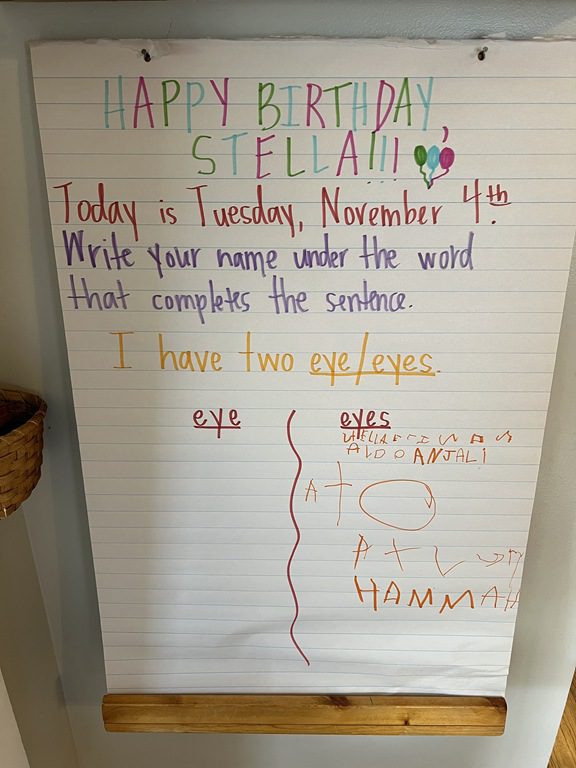 HAPPY BIRTHDAY,
STELLA!!!
Today is Tuesday, November 4th.
Write your name under the word
that completes the sentence.
I have two eye/eyes.
eye eyes
ALDO ANJALI
A
HAMMAH